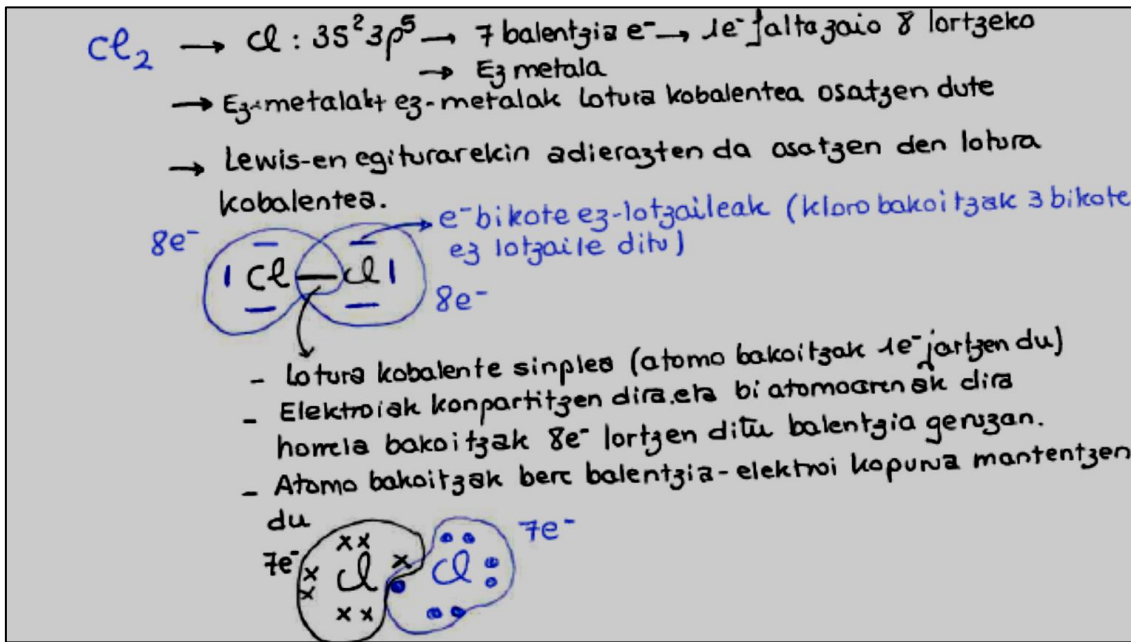 Cl₂ → Cl : 3s² 3p⁵ → 7 balentzia e⁻ → 1e⁻ falta zaio 8 lortzeko
→ Ez metala
→ Ez-metalak+ ez-metalak lotura kobalentea osatzen dute
→ Lewis-en egiturarekin adierazten da osatzen den lotura
kobalentea.
8e⁻ → e⁻ bikote ez-lotzaileak (kloro bakoitzak 3 bikote
ez lotzaile ditu)
Cl — Cl
8e⁻
- Lotura kobalente sinplea (atomo bakoitzak 1e⁻ jartzen du)
- Elektroiak konpartitzen dira eta bi atomoarenak dira
horrela bakoitzak 8e⁻ lortzen ditu balentzia geruzan.
- Atomo bakoitzak bere balentzia-elektroi kopurua mantentzen
du
7e⁻ Cl Cl 7e⁻